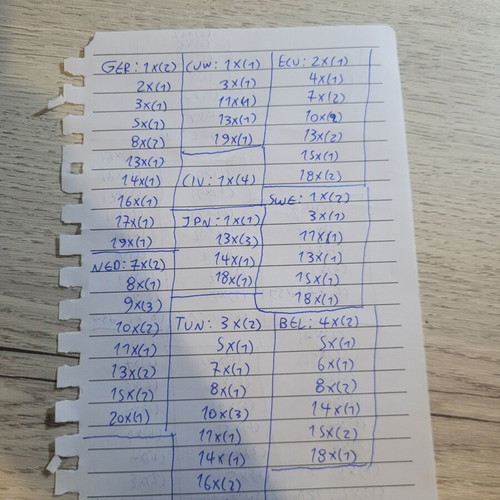 GER: 1x(2)
2x(1)
3x(1)
5x(1)
8x(2)
13x(1)
14x(1)
16x(1)
17x(1)
19x(1)
NED: 7x(2)
8x(1)
9x(3)
10x(2)
11x(1)
13x(2)
15x(2)
20x(1)
CUW: 1x(1)
3x(1)
11x(1)
13x(1)
19x(1)
CIV: 1x(4)
JPN: 1x(1)
13x(3)
14x(1)
18x(1)
TUN: 3x(2)
5x(1)
7x(1)
8x(1)
10x(3)
11x(1)
14x(1)
16x(2)
ECU: 2x(1)
4x(1)
7x(2)
10x(2)
13x(2)
15x(1)
18x(2)
SWE: 1x(2)
3x(1)
11x(1)
13x(1)
15x(1)
18x(1)
BEL: 4x(2)
5x(1)
6x(1)
8x(2)
14x(1)
15x(2)
18x(1)